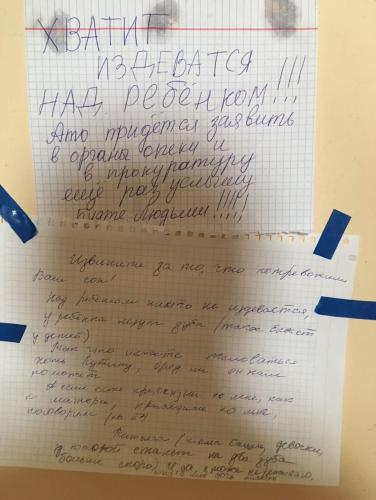 ХВАТИТ
ИЗДЕВАТСЯ
НАД РЕБЁНКОМ!!!
Ато придётся заявить
в органы опеки и
в прокуратуру
еще раз услышу
Извините за то, что потревожили
Ваш сон!
Над ребёнком никто не издевается,
у ребёнка лезут зубы (такое бывает
у детей)
Так что можете жаловаться
хоть Путину, вряд ли он нам
поможет.
А если есть претензии ко мне, как
к матери, приходите ко мне,
поговорим (кв 23)
Наталья (мама Саши, девочки,
у которой станет на два зуба
больше скоро) И да, я тоже не